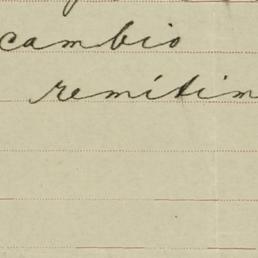 cambio
remitim